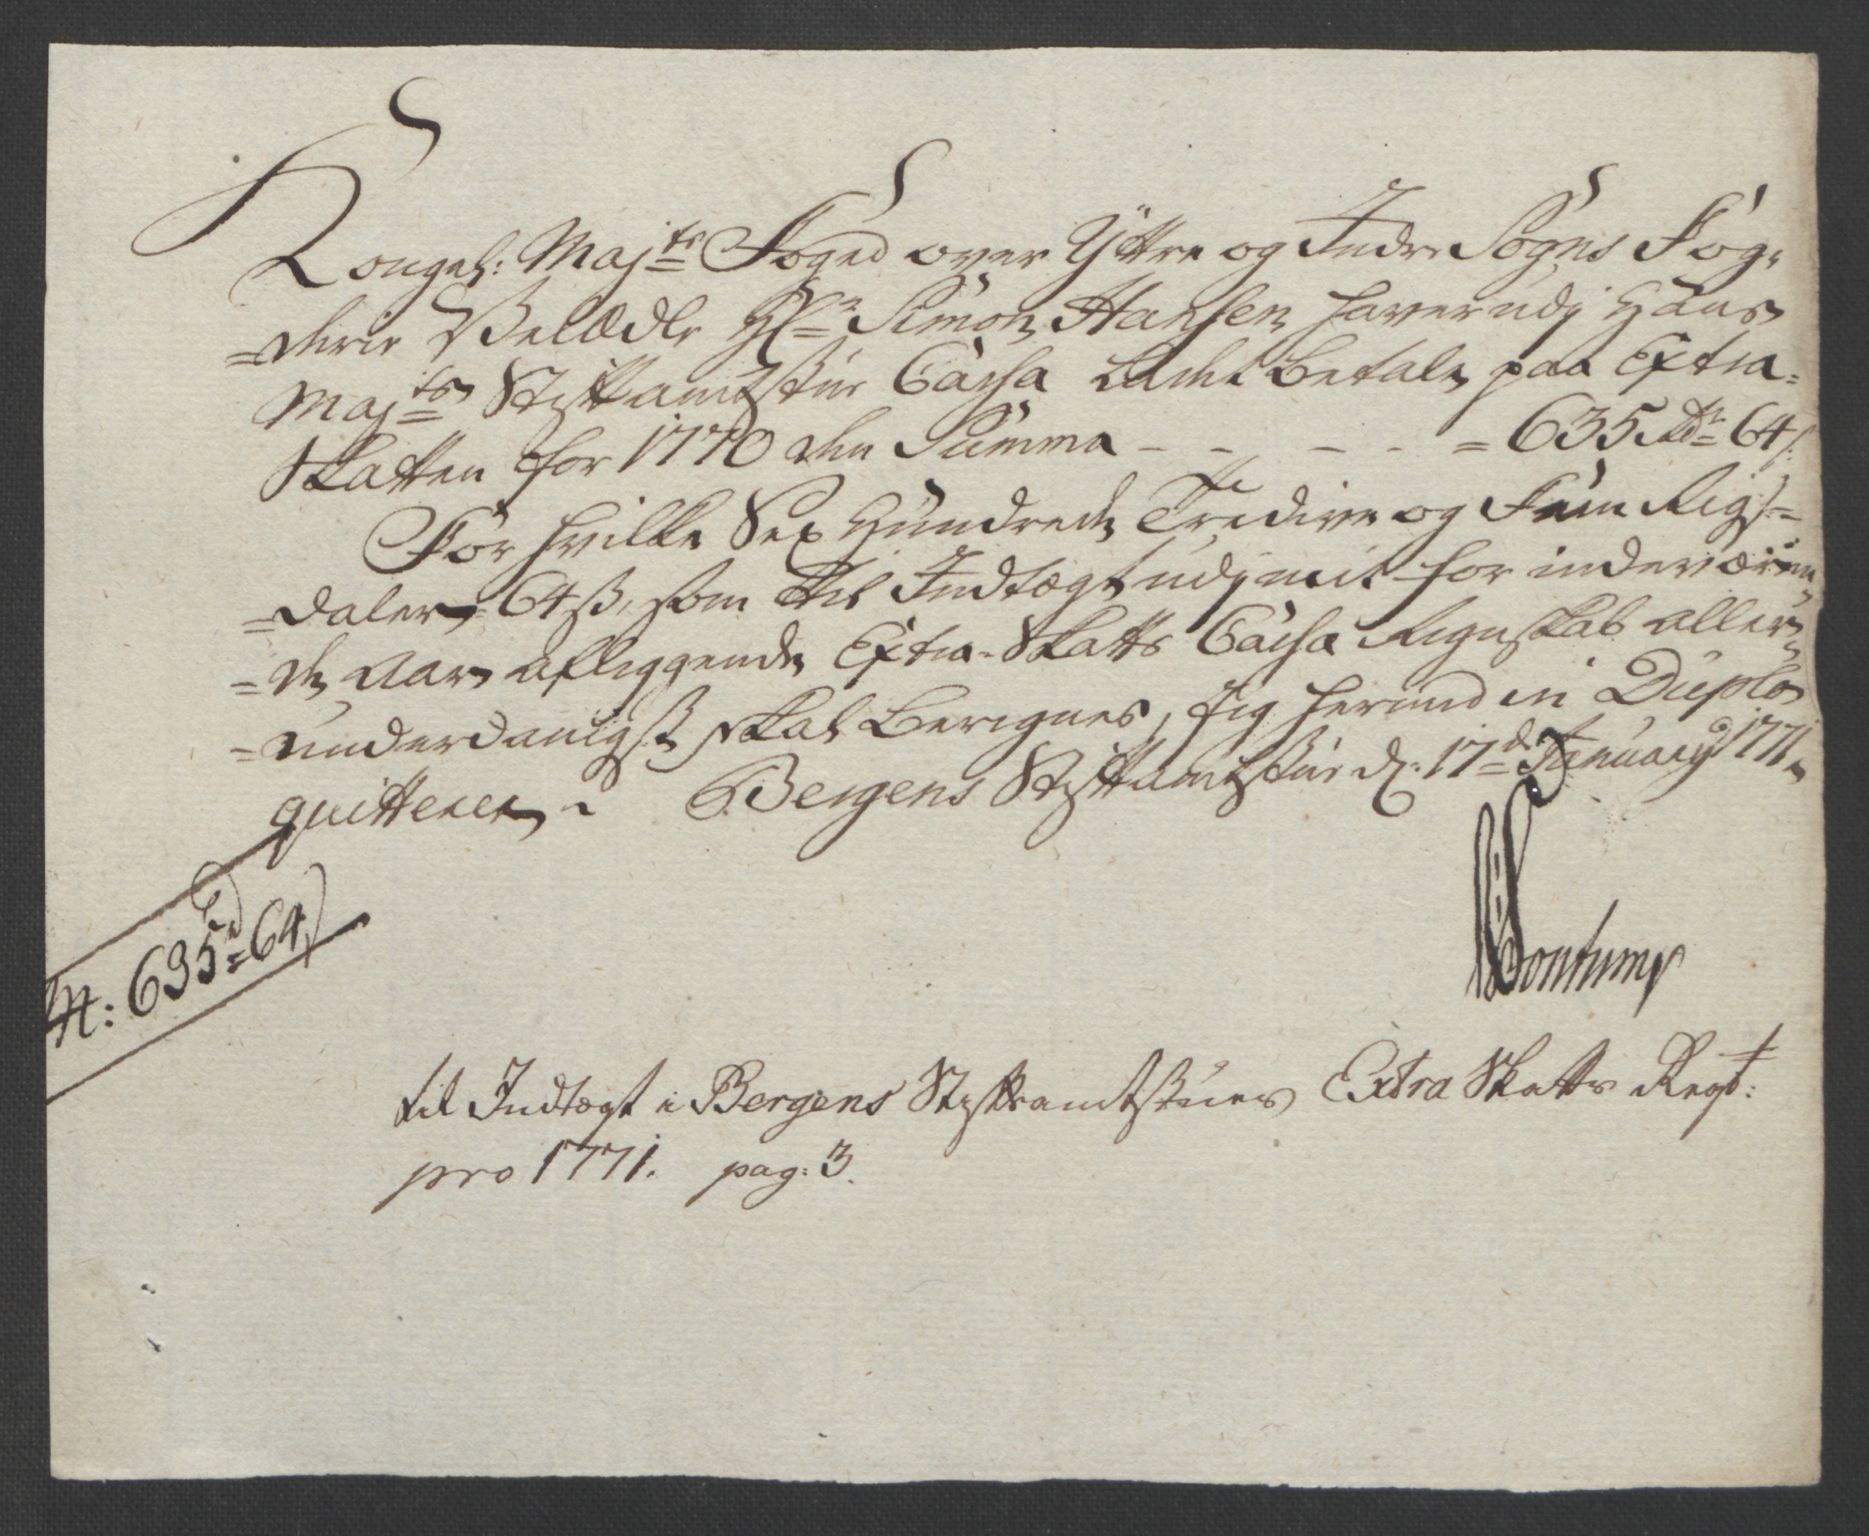 Kongel: Maj:ts Foged over Ÿttre og Indre Sogns Fog-
=derie Velædle Hr: Simon Hansen haver udj Hans
Maj:ts Stiftamtstue Cassa ladet betale paa Extra-
Skatten for 1770 den Summa - - - - - = 635 Rdr 64 s:
For hvilke Sex Hundrede Tredive og Fem Rigs-
=daler 64 s, som til Indtægt udj mit for indeværen-
=de Aar aflæggende Extra-Skatts Cassa Regnskab aller-
=underdanigst skal beregnes, jeg herved in Duplo
quitterer, Bergens Stiftamtstue d: 17de January 1771
635 rd = 64 s
til Indtægt i Bergens Stiftsamtstues Extra Skatts Regst:
pro 1771. pag: 3.